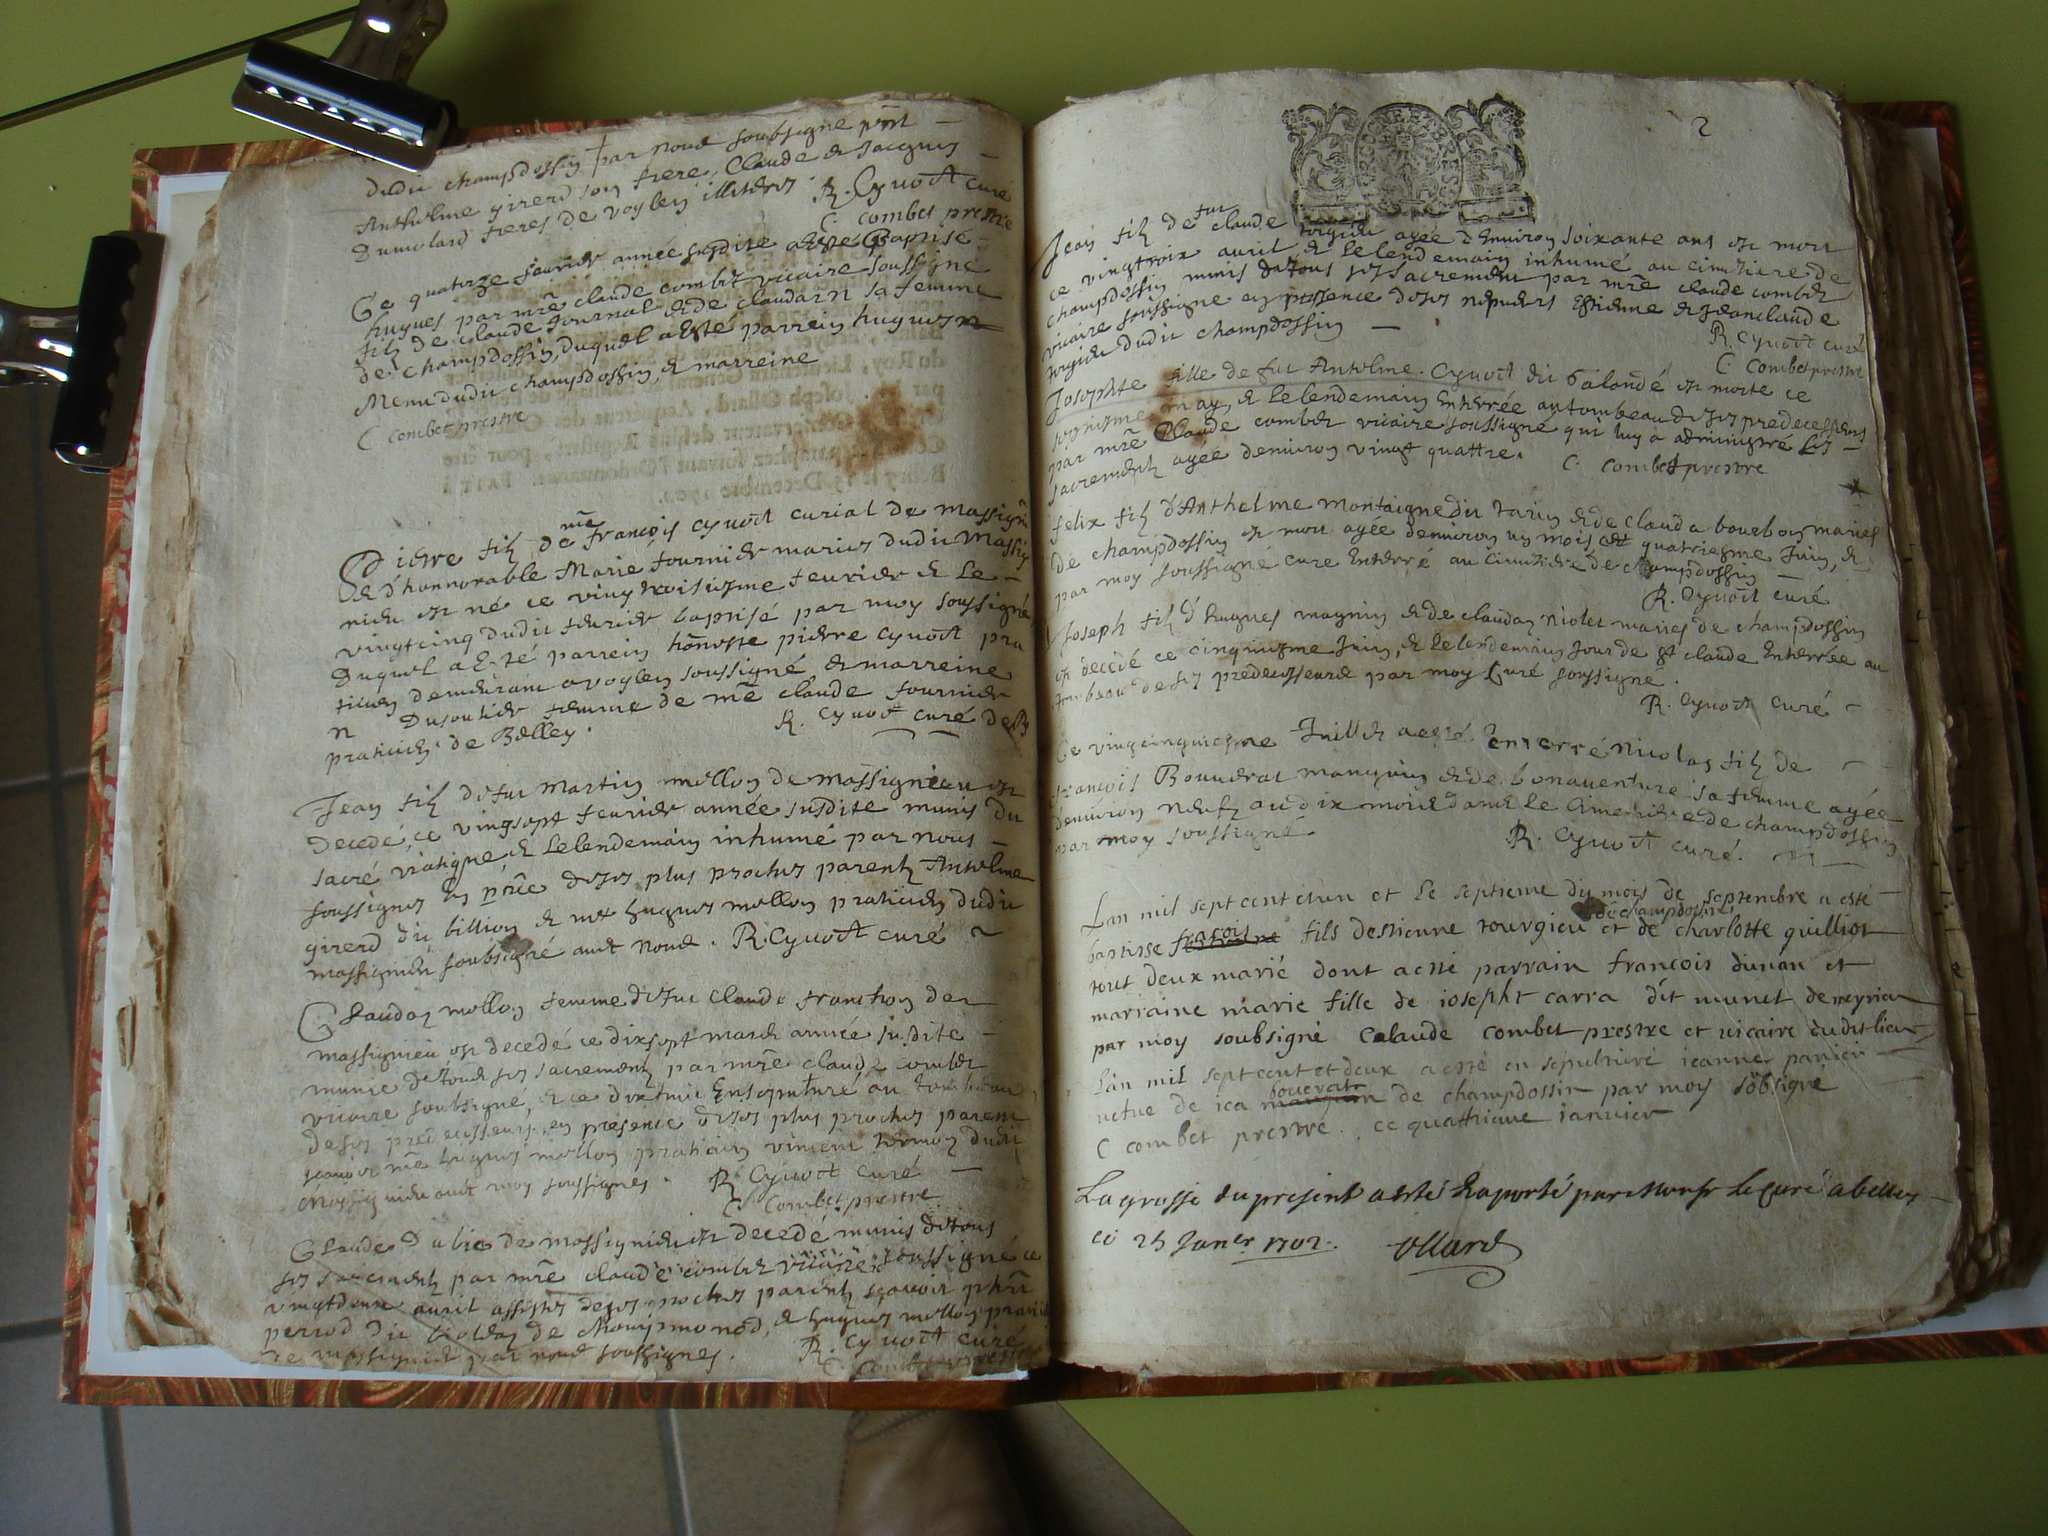 dudit champdossin par nous soubsigne pñt
Anthelme girerd son frere, Claude & Jacques
Dumolard freres de voglen illiteres R. Cyvoct curé
C combet prestre
Ce quatorze feuvrier année susdite a esté Baptisé
hugues par mre claude combet vicaire soussigne
fils de claude Journal & de claudaz N sa femme
de champdossin, duquel a Esté parrein hugues N
Menu dudit champdossin, & marreine
C combet prestre
Pierre filz de me francois cyvoct curial de Massignieu
& d'honnorable Marie fournier maries dudit Massig
nieu est né ce vingtroisiesme feuvrier & le
vingtcinq dudit feuvrier baptisé par moy soussigné
Duquel a Esté parrein honneste pierre cyvoct pra
ticien demeurant a voglen soussigné & marreine
N Dusoutier femme de me claude fournier
praticien de Belley. R. Cyvoct curé
Jean filz de feu Martin mollon de Massignieu est
Decedé, ce vingsept feuvrier année susdite munis du
sacré viatique, & le lendemain inhumé par nous
soussignes En pñce de ses plus proches parents Antelme
girerd dit billion & me hugues mollon praticien dudit
massignieu soubsigné avec nous. R. Cyvoct curé
Claudaz mollon femme de feu Claude franchon de
massignieu est decedé ce dixsept mars année susdite
munie de tous ses sacrements par mre claude combet
vicaire soubsigné, & ce dixhuit Ensepulturé au tombeau
de ses predecesseurs en presence de ses plus proches parents
scavoir me hugues mollon praticien vincent dudit
Massignieu avec moy soussignes. R. Cyvoct curé
C. Combet prestre
Claude Dubie de massignieu est decedé munis de tous
ses sacrements par mre claude combet vicaire soussigné ce
vingtdeux avril assistes de ses proches parents scavoir
de & hugues mollon pratici
de massignieu par nous soussignes. R. Cyvoct curé
C. Combet prestre
2
Jean filz de feu claude torgieu agée d'Environ soixante ans est mort
ce vingtroix avril & le lendemain inhumé au cimetiere de
champdossin munis de tous ses sacrements par mre claude combet
vicaire soussigne en presence de ses nepveurs Estienne & Jeanclaude
torgieu dudit champdossin R. Cyvoct curé
C Combet prestre
Josephte fille de feu Antelme Cyvoct dit balandé est morte ce
may, & le lendemain Enterrée au tombeau de ses predecesseurs
par mre Claude combet vicaire soussigné qui luy a administré les
sacrements agée denviron vingt quattre. C. combet prestre
felix filz d'Anthelme montaigne dit tarin & de clauda bourbon maries
de champdossin est mort agée denviron un mois ce quatriesme Juin, &
par moy soussigné curé Enterré au cimitiere de champdossin
R. Cyvoct curé
Joseph filz d'hugues magnin & de claudaz violet maries de champdossin
est decedé ce cinquiesme Juin, & le lendemain jour de st claude Enterrée au
tombeau de ses predecesseurs par moy Curé soussigné.
R. Cyvoct curé
Ce vingtcinquiesme Juillet a esté Enterré Nicolas filz de
francois Bouverat & de bonaventure sa femme agée
denviron neufz au dix mois dans le Cimetiere de champdossin
par moy soussigné R. Cyvoct curé.
Lan mil sept cent et un et le septieme du mois de septembre a esté
de champdossin
batisse francois fils destienne tourgieu et de charlotte quilliot
tout deux marié dont a esté parrain francois dunan et
marraine marie fille de iosepht carra dit munet de meyrieu
par moy soubsigné Calaude combet prestre et vicaire dudit lieu
Lan mil sept cent et deux a esté en sepulturé ieanne panier
vefve de iea bouverat de champdossin par moy sobsigné
C combet prestre. ce quattrieme ianvier
La grosse du present a esté Raporté par Monsr le Curé a belley
ce 25 Janer 1702.